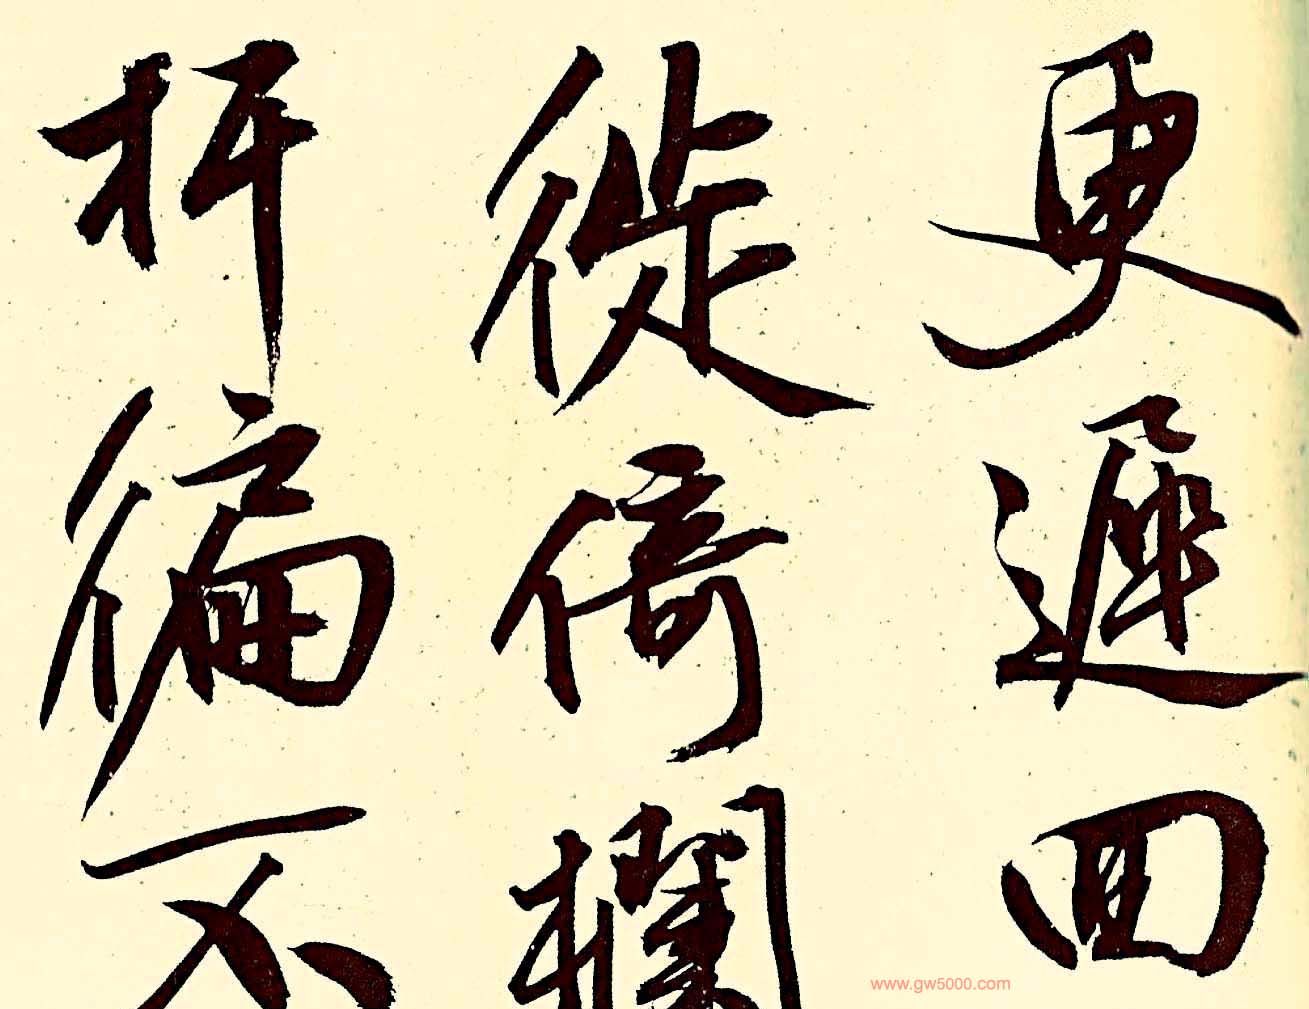 更遲回
徙倚欄
折徧不
www.gw5000.com